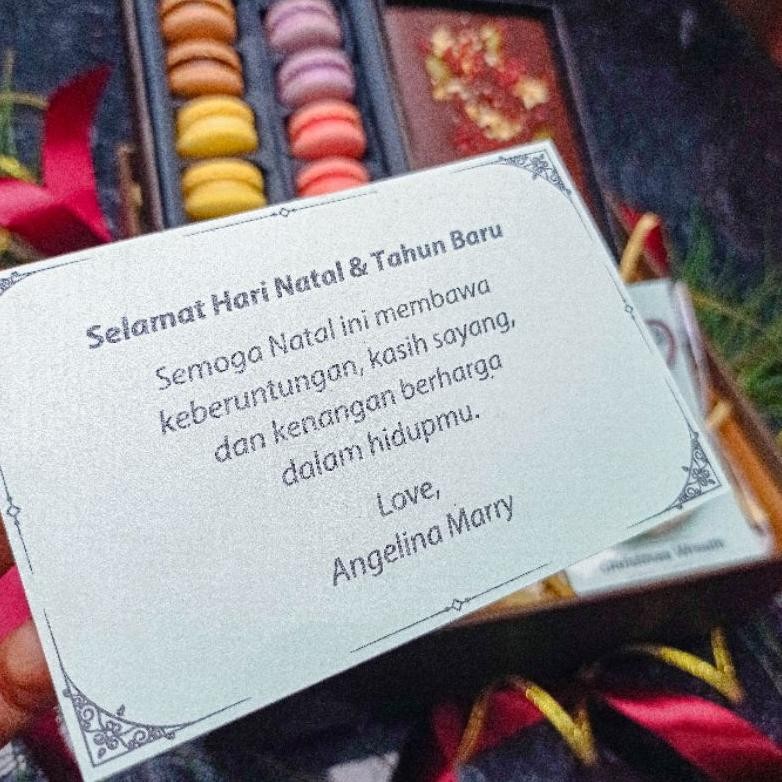 Selamat Hari Natal & Tahun Baru
Semoga Natal ini membawa
keberuntungan, kasih sayang,
dan kenangan berharga
dalam hidupmu.
Love,
Angelina Marry